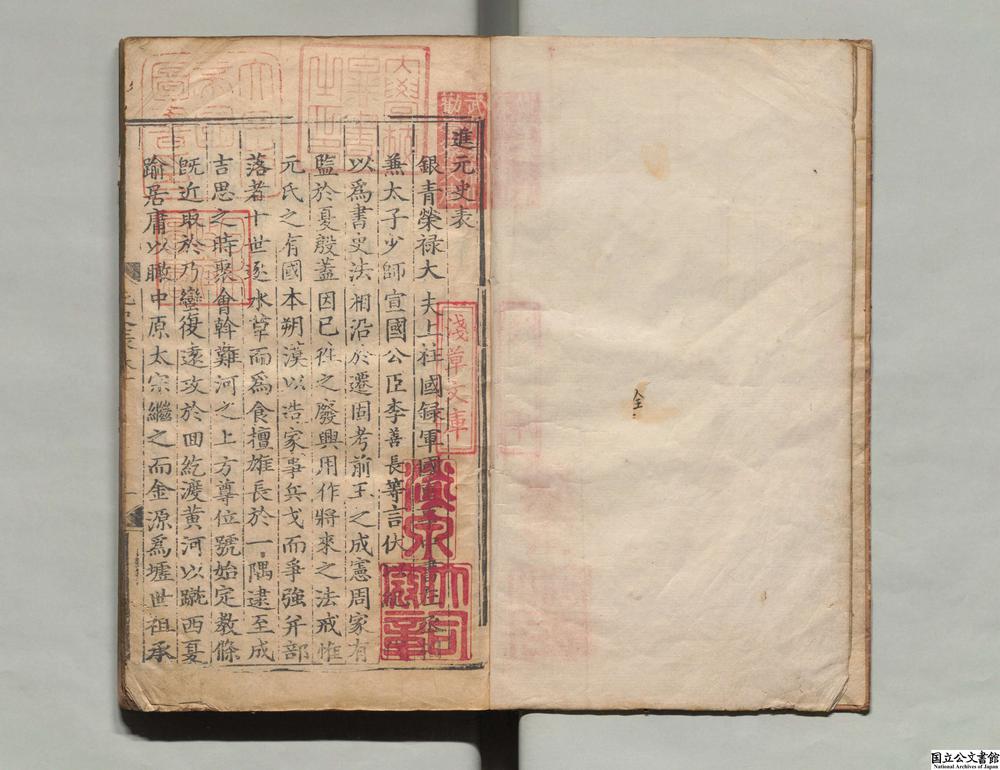 全
進元史表
銀青榮禄大夫上柱國録軍國重事中書左丞相
兼太子少師宣國公臣李善長等言伏
以爲書史法相沿於遷固考前王之成憲周家有
監於夏殷蓋因已往之廢興用作將來之法戒惟
元氏之有國本朔漠以造家事兵戈而爭強并部
落者十世逐水草而爲食擅雄長於一隅逮至成
吉思之時聚會斡難河之上方尊位號始定教條
既近取於乃蠻復遠攻於回紇渡黄河以蹴西夏
踰居庸以瞰中原太宗繼之而金源爲墟世祖承
淺草文庫
国立公文書館
National Archives of Japan